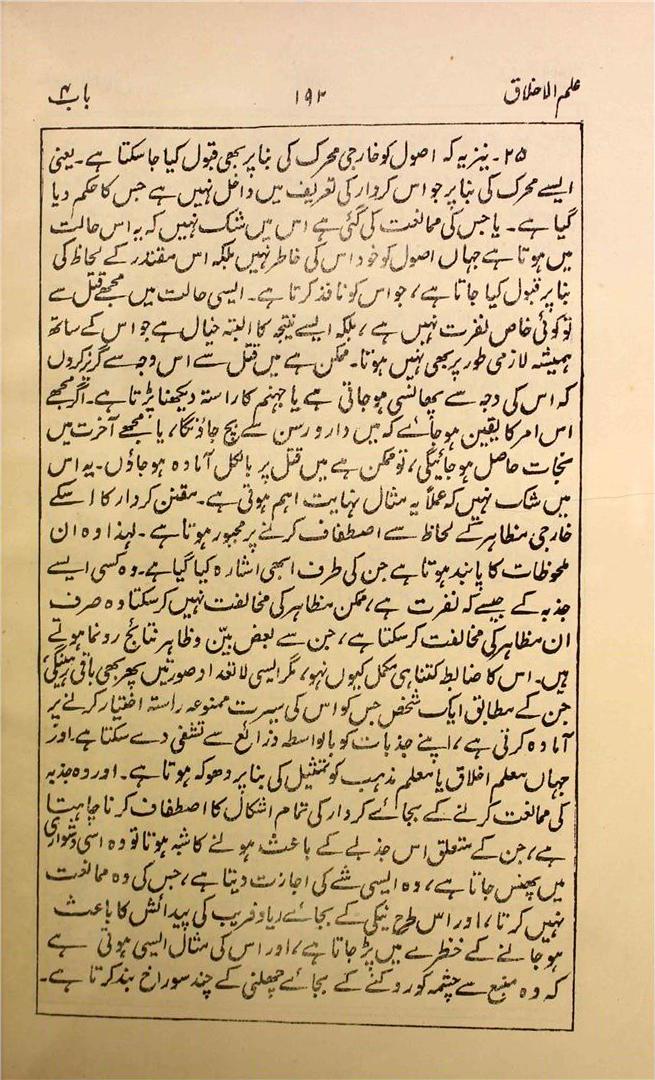 علم الاخلاق ۱۹۲ باب ۴
۲۵۔ نیز یہ کہ اصول کو خارجی محرک کی بنا پر بھی قبول کیا جا سکتا ہے۔ یعنی
ایسے محرک کی بنا پر جو اس کردار کی تعریف میں داخل نہیں ہے جس کا حکم دیا
گیا ہے۔ یا جس کی ممانعت کی گئی ہے اس میں شک نہیں کہ یہ اس حالت
میں ہوتا ہے جہاں اصول کو خود اس کی خاطر نہیں بلکہ اس مقتدر کے لحاظ کی
بنا پر قبول کیا جاتا ہے، جو اس کو نافذ کرتا ہے۔ ایسی حالت میں مجھے قتل سے
تو کوئی خاص نفرت نہیں ہے، بلکہ ایسے نتیجہ کا البتہ خیال ہے جو اس کے ساتھ
ہمیشہ لازمی طور پر بھی نہیں ہوتا۔ ممکن ہے میں قتل سے اس وجہ سے گریز کروں
کہ اس کی وجہ سے پھانسی ہو جاتی ہے یا جہنم کا راستہ دیکھنا پڑتا ہے۔ اگر مجھے
اس امر کا یقین ہو جائے کہ میں دار و رسن سے بچ جاؤنگا، یا مجھے آخرت میں
نجات حاصل ہو جائیگی، تو ممکن ہے میں قتل پر بالکل آمادہ ہو جاؤں۔ یہ اس
میں شک نہیں کہ عملاً یہ مثال نہایت اہم ہوتی ہے۔ مقنن کردار کا اسکے
خارجی مظاہر کے لحاظ سے اصطفاف کرنے پر مجبور ہوتا ہے۔ لہذا وہ ان
ملحوظات کا پابند ہوتا ہے جن کی طرف ابھی اشارہ کیا گیا ہے۔ وہ کسی ایسے
جذبہ کے جیسے کہ نفرت ہے، ممکن مظاہر کی مخالفت نہیں کر سکتا وہ صرف
ان مظاہر کی مخالفت کر سکتا ہے، جن سے بعض بیّن و ظاہر نتائج رونما ہوتے
ہیں۔ اس کا ضابطہ کتنا ہی مکمل کیوں نہو، مگر ایسی لاتعداد صورتیں پھر بھی باقی رہینگی
جن کے مطابق ایک شخص جس کو اس کی سیرت ممنوعہ راستہ اختیار کرنے پر
آمادہ کرتی ہے، اپنے جذبات کو بالواسطہ ذرائع سے تشفی دے سکتا ہے۔ اور
جہاں معلم اخلاق یا معلم مذہب کو تمثیل کی بنا پر دھوکہ ہوتا ہے۔ اور وہ جذبہ
کی ممانعت کرنے کے بجائے کردار کی تمام اشکال کا اصطفاف کرنا چاہتا
ہے، جن کے متعلق اس جذبے کے باعث ہونے کا شبہ ہوتا تو وہ اسی دشواری
میں پھنس جاتا ہے، وہ ایسی شے کی اجازت دیتا ہے، جس کی وہ ممانعت
نہیں کرتا، اور اس طرح نیکی کے بجائے ریا و فریب کی پیدائش کا باعث
ہو جانے کے خطرے میں پڑ جاتا ہے، اور اس کی مثال ایسی ہوتی ہے
کہ وہ منبع سے چشمہ کو روکنے کے بجائے چھلنی کے چند سوراخ بند کرتا ہے۔